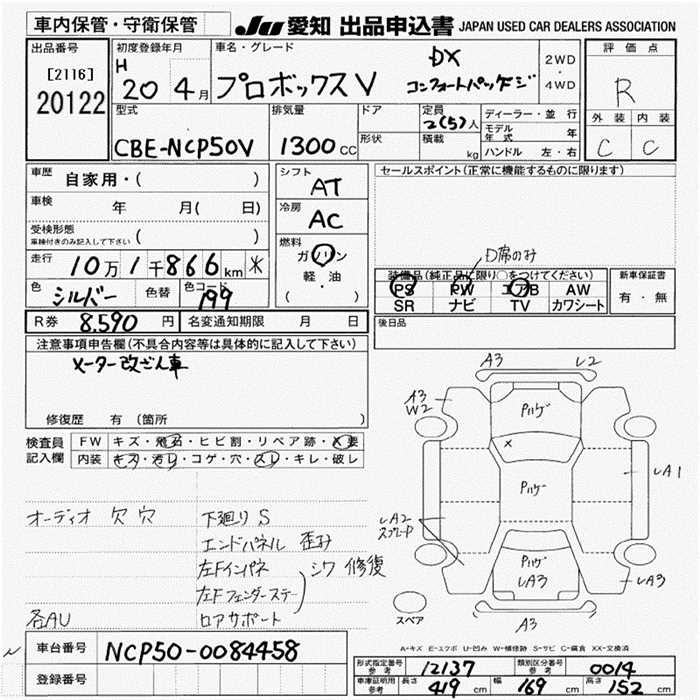 車内保管・守衛保管
JU 愛知 出品申込書 JAPAN USED CAR DEALERS ASSOCIATION
出品番号
[2116]
20122
初度登録年月
H 20 4月
車名・グレード
プロボックスV
DX
コンフォートパッケージ
2WD
・
4WD
評価点
R
外装 内装
C C
型式
CBE-NCP50V
排気量
1300 CC
ドア
形状
定員
2(5)人
積載
kg
ディーラー・並行
モデル年式 年
ハンドル 左・右
車歴 自家用・( )
車検 年 月( 日)
受検形態
車検付きのみ記入して下さい ( )
走行 10万1千866km
色 シルバー 色替 色コード 199
シフト
AT
冷房
AC
燃料
ガソリン
軽・油
( )
セールスポイント(正常に機能するものに限ります)
D席のみ
装備品(純正品に限り○をつけてください)
PS PW エアB AW
SR ナビ TV カワシート
新車保証書
有・無
R券 8.590 円 名変通知期限 月 日
後日品
注意事項申告欄(不具合内容等は具体的に記入して下さい)
メーター改ざん車
修復歴 有(箇所
検査員
記入欄
FW キズ・飛石・ヒビ割・リペア跡・X要
内装 キズ・汚レ・コゲ・穴・スレ・キレ・破レ
オーディオ欠穴
下廻りS
エンドパネル 歪み
左Fインパネ
左Fフェンダーステー
シワ修復
各AU
ロアサポート
A3 L2
A3
W2
Pハゲ
x
Pハゲ
LA1
LA2
スプレード
Pハゲ
LA3
LA3
スペア
A3
A-キズ E-エクボ U-凹み W-補修跡 S-サビ C-腐食 XX-交換済
車台番号 NCP50-0084458
登録番号
形式指定番号 参考 12137 類別区分番号 参考 0014
車庫証明用 参考 長さ 419 cm 幅 169 cm 高さ 152 cm